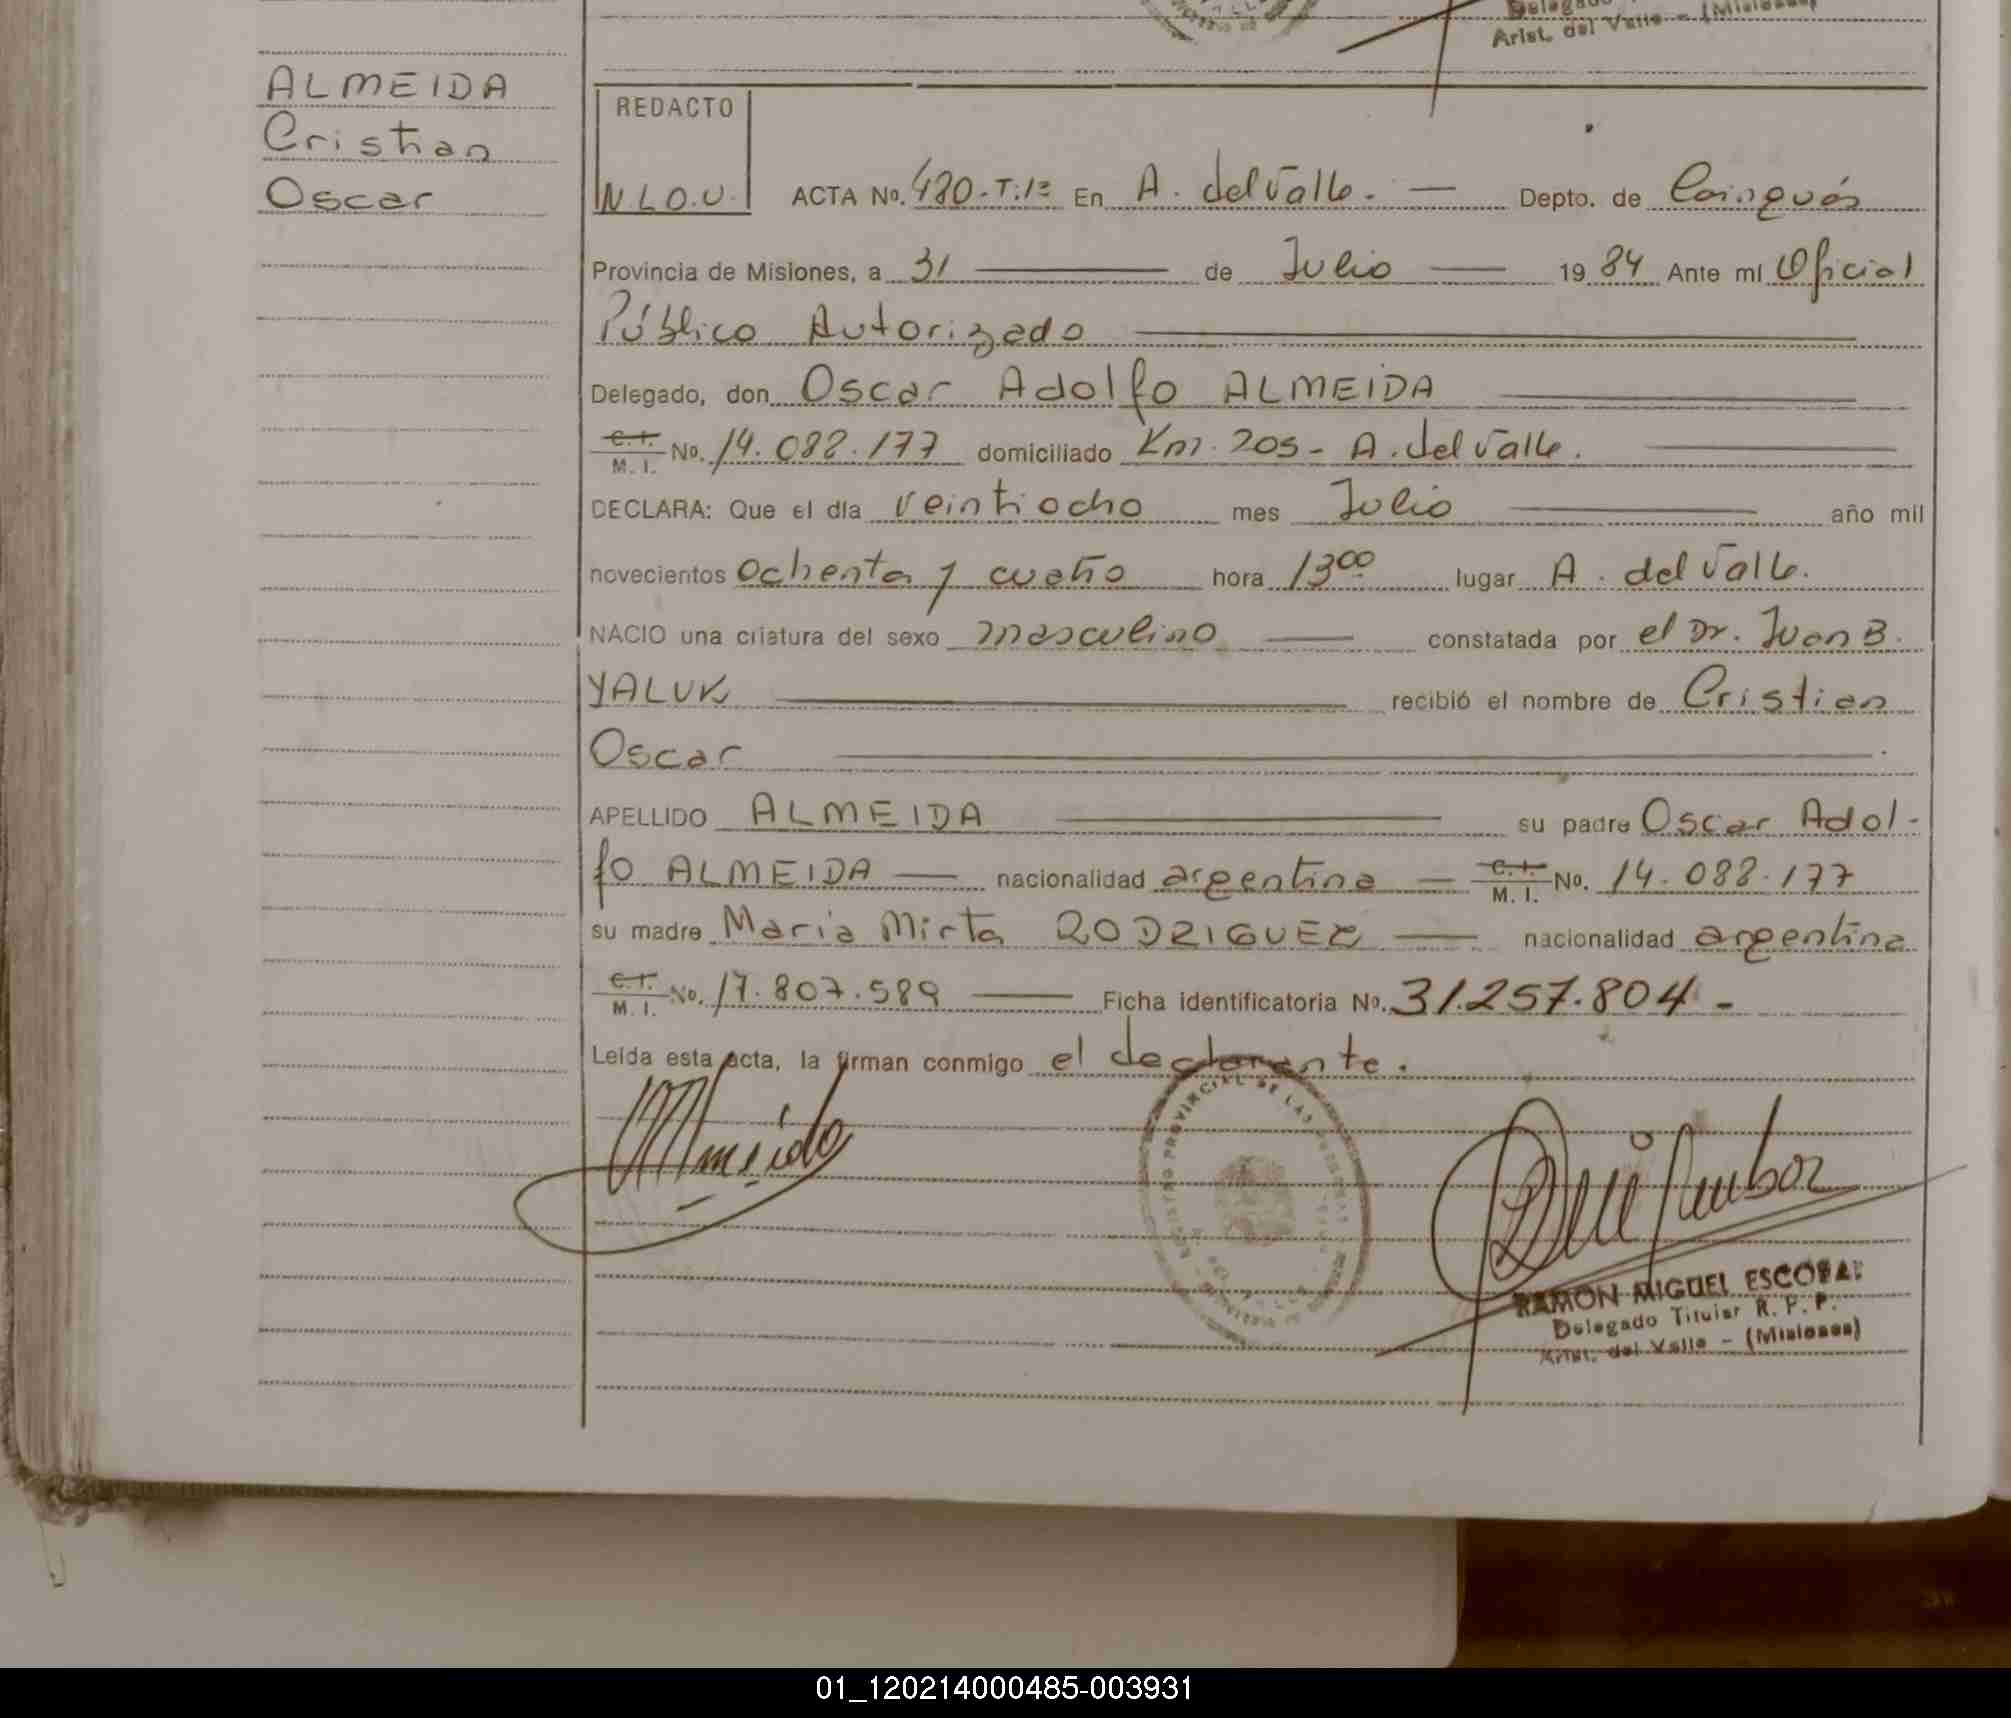 Delegado
Arist. del Valle - (Misiones)
ALMEIDA
Cristian
Oscar
REDACTO
N.L.O.U.
ACTA No. 480-T:1º En A. del Valle. — Depto. de Cainguás
Provincia de Misiones, a 31 — de Julio — 1984 Ante mí Oficial
Público Autorizado
Delegado, don Oscar Adolfo ALMEIDA
C.I. M. I. No. 14.088.177 domiciliado Km. 205 - A. del Valle.
DECLARA: Que el día veintiocho mes Julio año mil
novecientos ochenta y cuatro hora 13⁰⁰ lugar A. del Valle.
NACIO una criatura del sexo masculino — constatada por el Dr. Juan B.
YALUK recibió el nombre de Cristian
Oscar
APELLIDO ALMEIDA su padre Oscar Adol-
fo ALMEIDA — nacionalidad argentina — C.I. M. I. No. 14.088.177
su madre María Mirta RODRIGUEZ — nacionalidad argentina
C.I. M. I. No. 17.807.589 — Ficha identificatoria No. 31.257.804 -
Leída esta acta, la firman conmigo el declarante.
Almeida
REGISTRO PROVINCIAL DE LAS PERSONAS
RAMON MIGUEL ESCOBAR
Delegado Titular R. P. P.
Arist. del Valle - (Misiones)
01_120214000485-003931